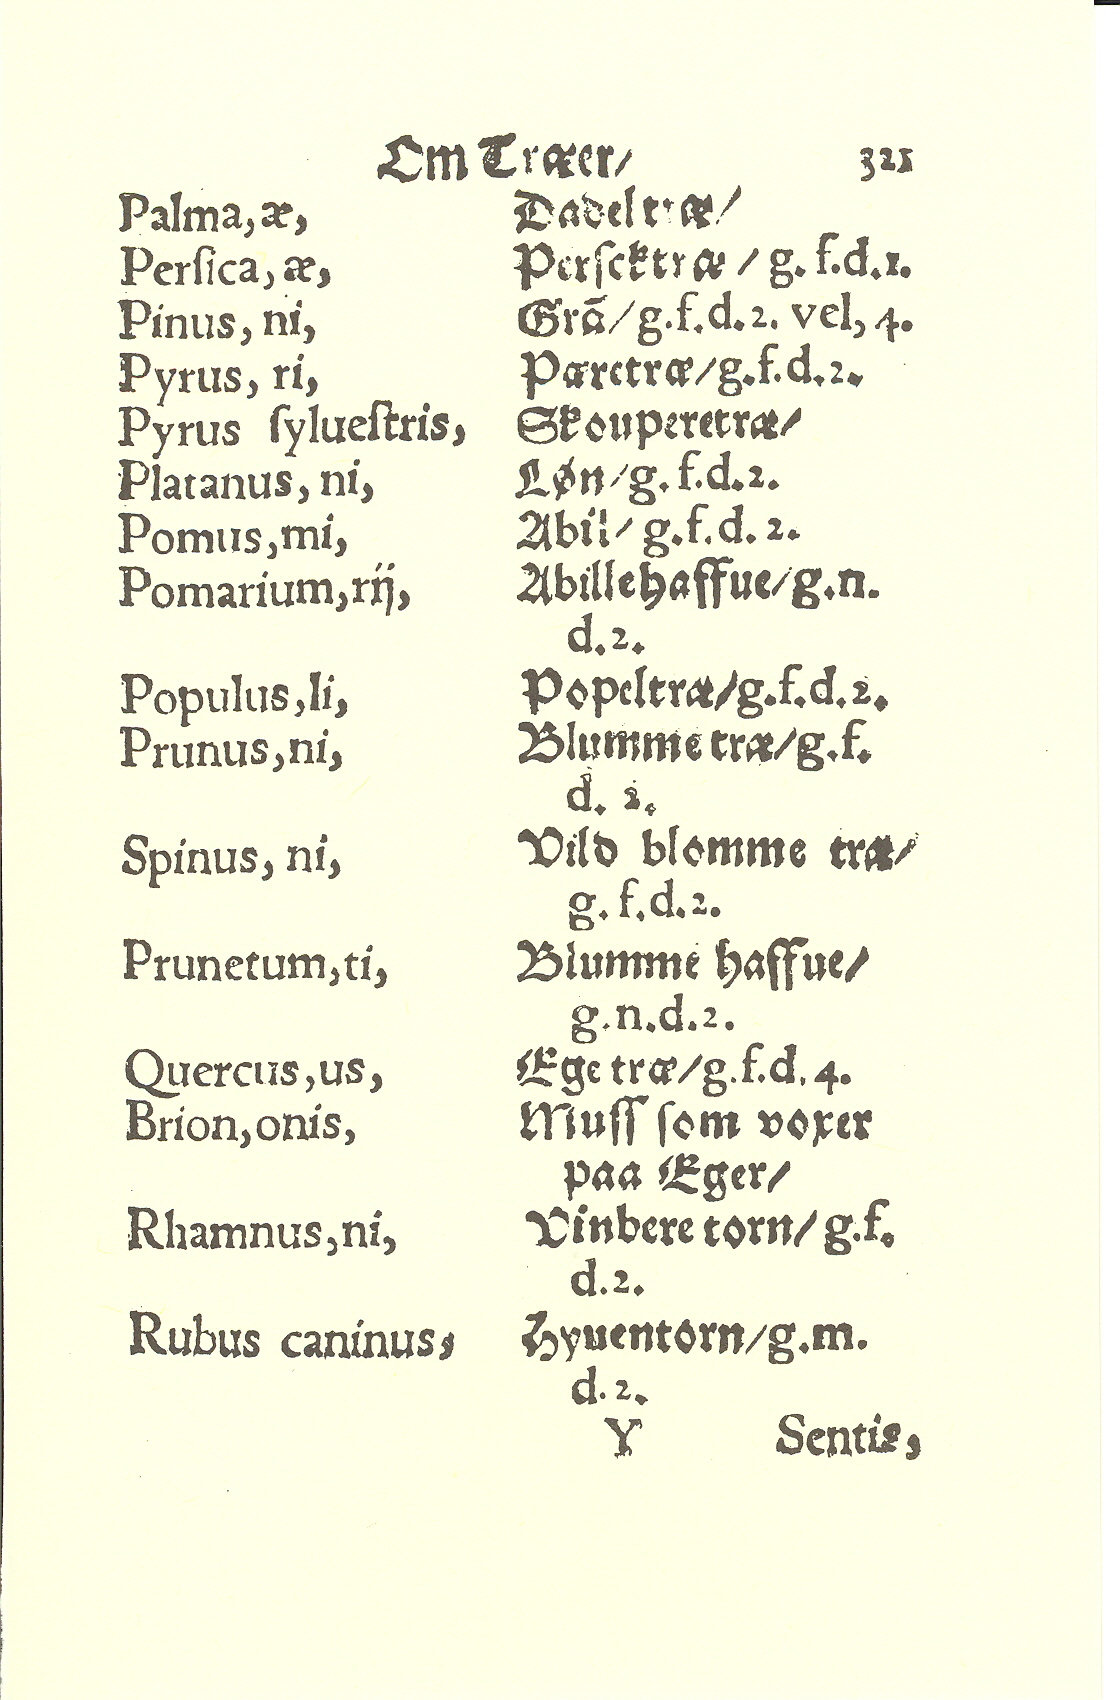 Om Træer/ 321
Palma, æ, Dadeltræ/
Perſica, æ, Perſcktræ / g. f.d.1.
Pinus, ni, Grã/g.f.d.2. vel, 4.
Pyrus, ri, Pæretræ/g.f.d.2.
Pyrus ſylueſtris, Skouperetræ/
Platanus, ni, Løn/g. f.d.2.
Pomus,mi, Abil/ g.f.d. 2.
Pomarium,rij, Abillehaffue/g.n.
d.2.
Populus,li, Popeltræ/g.f.d.2.
Prunus,ni, Blumme træ/g.f.
d. 2.
Spinus, ni, Vild blomme træ/
g. f.d.2.
Prunetum,ti, Blumme haffue/
g.n.d.2.
Quercus,us, Ege træ/g.f.d.4.
Brion,onis, Muſſ ſom voxer
paa Eger/
Rhamnus,ni, Vinbere torn/ g.f.
d.2.
Rubus caninus, Hyuentorn/g.m.
d.2.
Y Sentis,